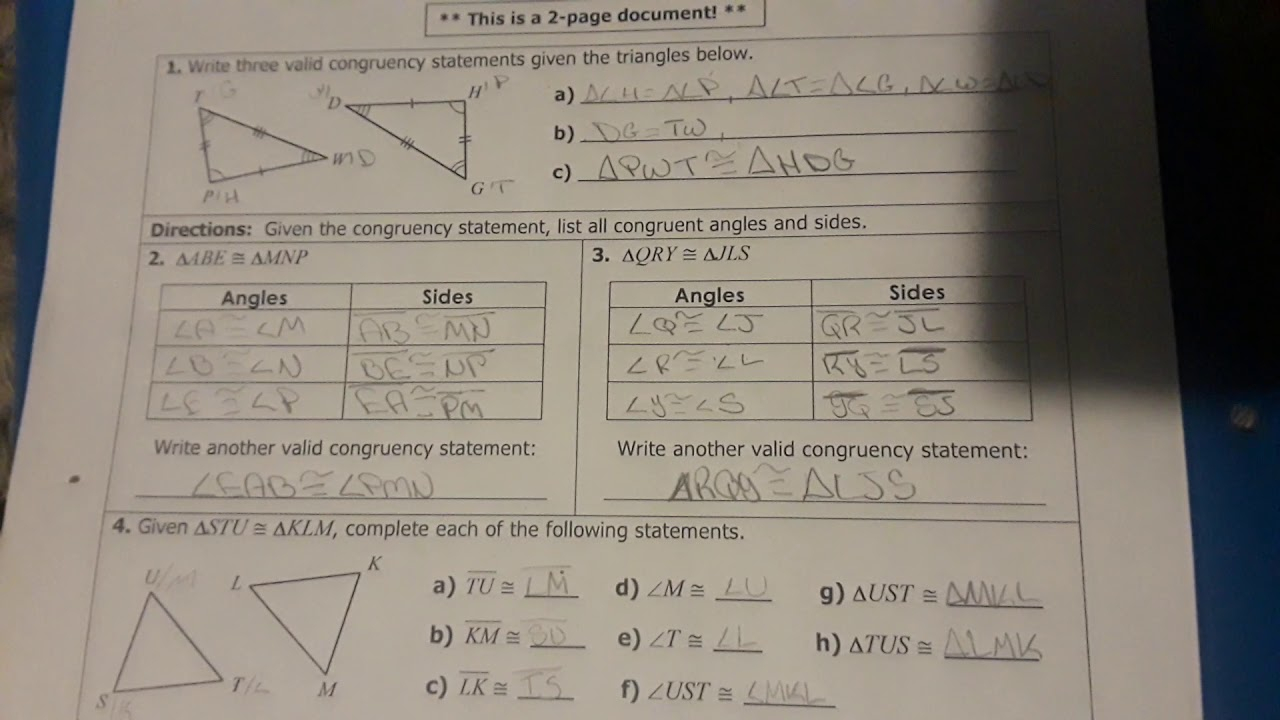 ** This is a 2-page document! **
1. Write three valid congruency statements given the triangles below.
T G
D
H P
W D
P/H
G T
a) Δ∠H = Δ∠P, Δ∠T = Δ∠G,
b) DG = TW,
c) ΔPWT ≅ ΔHDG
Directions: Given the congruency statement, list all congruent angles and sides.
2. ΔABE ≅ ΔMNP
Angles Sides
∠A ≅ ∠M AB ≅ MN
∠B ≅ ∠N BE ≅ NP
∠E ≅ ∠P EA ≅ PM
Write another valid congruency statement:
∠EAB ≅ ∠PMN
3. ΔQRY ≅ ΔJLS
Angles Sides
∠Q ≅ ∠J QR ≅ JL
∠R ≅ ∠L RY ≅ LS
∠Y ≅ ∠S YQ ≅ SJ
Write another valid congruency statement:
ΔRQY ≅ ΔLJS
4. Given ΔSTU ≅ ΔKLM, complete each of the following statements.
U/M
S
T/L
L
K
M
a) TU ≅ LM
b) KM ≅ SU
c) LK ≅ TS
d) ∠M ≅ ∠U
e) ∠T ≅ ∠L
f) ∠UST ≅ ∠MKL
g) ΔUST ≅ ΔMKL
h) ΔTUS ≅ ΔLMK